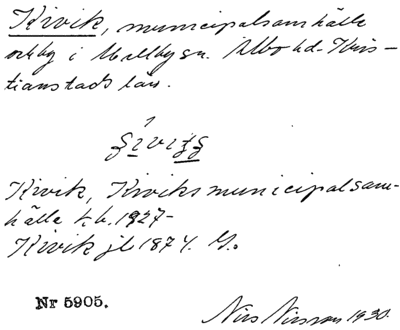 Kivik, municipalsamhälle
och by i Mellby sn. Albo hd. Kris-
tianstads län.
Kivik, Kiviks municipalsam-
hälle t.b. 1927-
Kivik jb 1874. G.
Nr 5905.
Nils Nilsson 1930.